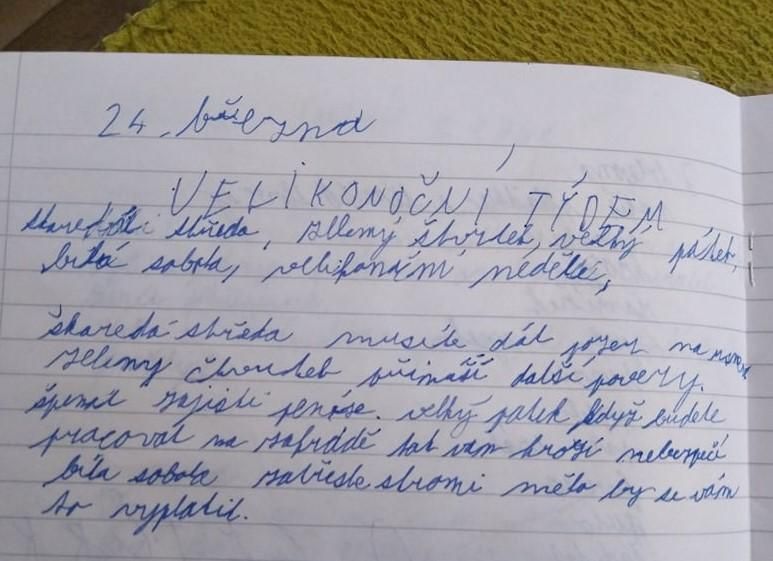 24. března
VELIKONOČNÍ TÝDEM
středa, zelemý čtvrtek, velký pátek,
bílá sobota, neděle,
škaredá středa musíte dát pozor na
zelemy čtvrtek další povery.
špenát zajistí peníze. velký patek když budete
pracovat na zahrádě tak vam hrozí nebezpečí
bíla sobota zatřeste stromi mělo by se vám
to vyplatit.